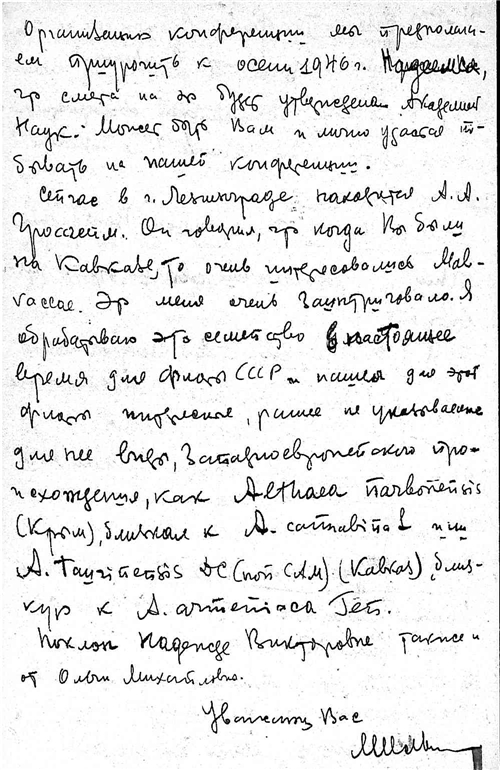 Организацию конференции мы предполага-
ем приурочить к осени 1946 г. Надеемся,
что смета на это будет утверждена Академией
Наук. Может быть Вам и лично удастся по-
бывать на нашей конференции.
Сейчас в г. Ленинграде находится А. А.
Гроссгейм. Он говорил, что когда Вы были
на Кавказе, то очень интересовались Mal-
vaceae. Это меня очень заинтриговало. Я
обрабатываю это семейство в настоящее
время для флоры СССР и нашел для этой
флоры интересные, ранее не указываемые
для нее виды, западноевропейского про-
исхождения, как Althaea narbonensis
(Крым), близкая к A. cannabina L или
A. taurinensis DC (non CAM) (Кавказ), близ-
кую к A. armeniaca Ten.
Поклон Надежде Викторовне также и
от Ольги Михайловны.
Уважающий Вас